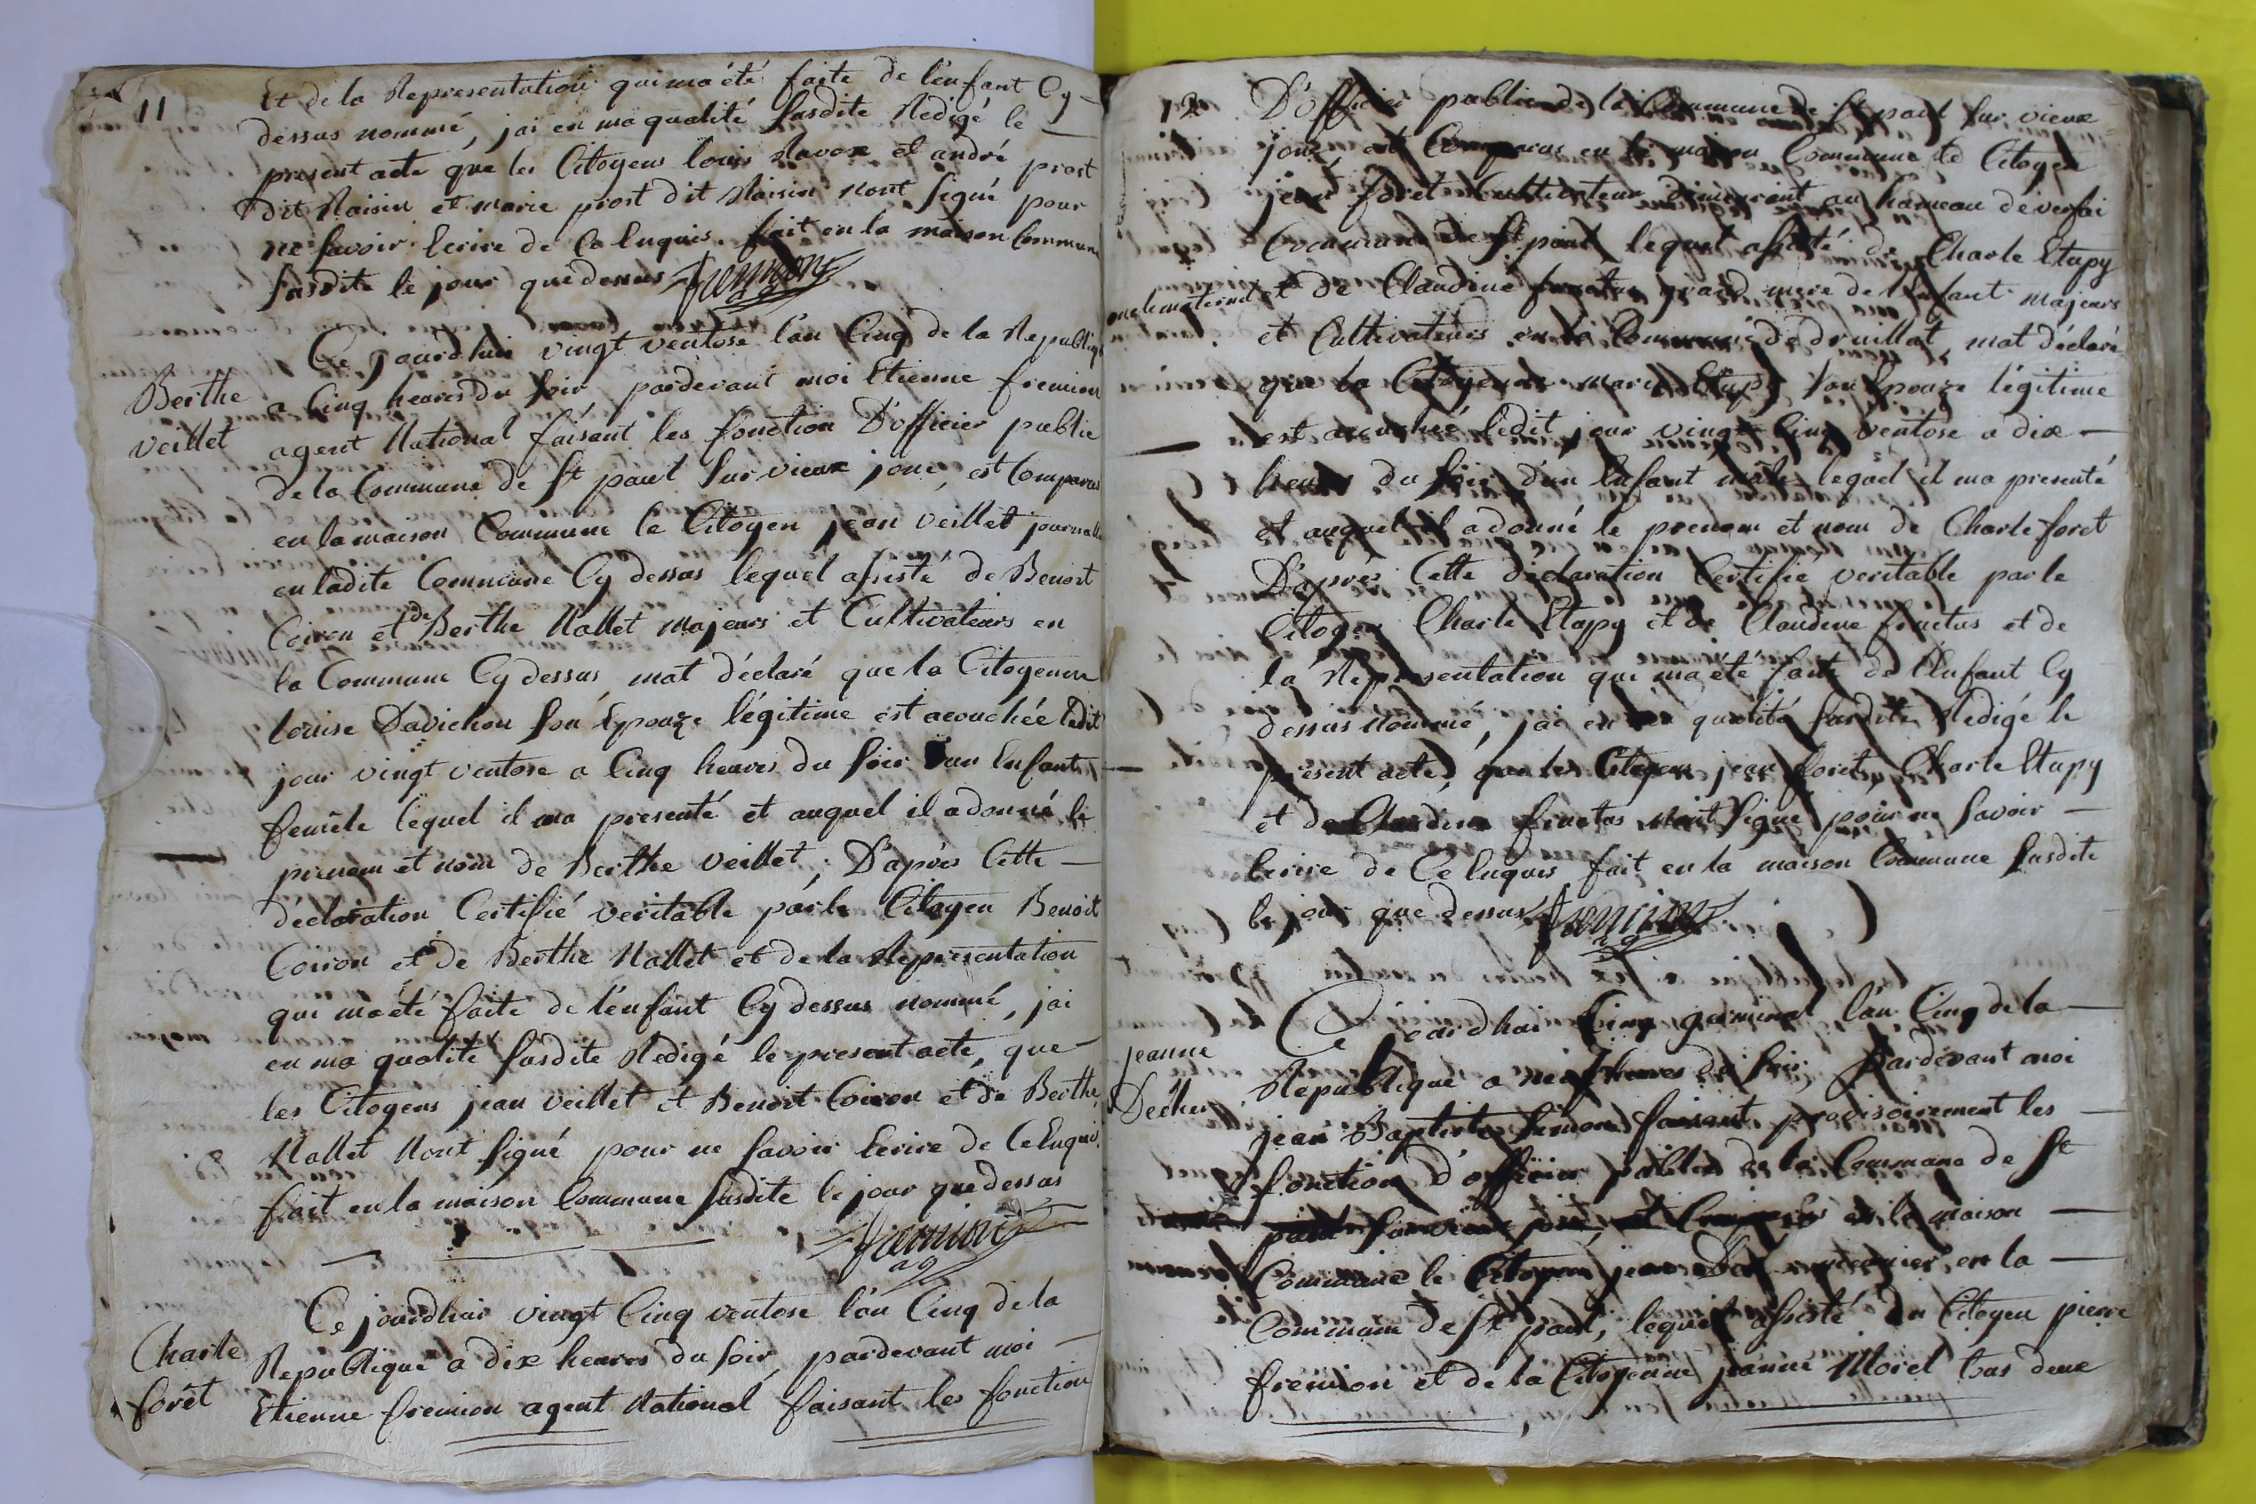 11
Et de la Representation qui ma été faite de lenfant Cy-
dessus nommé, jai en ma qualité susdite Redigé le
present acte que les Citoyens louis Ravox et andré prost
dit Raisin et marie prost dit Raisin nont signé pour
ne savoir Ecrire de Ce Enquis. fait en la maison Commune
susdite le jour que dessus fremion
ag
Berthe
veillet
Ce jourdhui vingt ventose l'an Cinq de la Republique
a Cinq heures du soir pardevant moi Etienne fremion
agent National faisant les fonction D'officier public
de la Commune de St paul sur vieux jonc, est Comparus
en la maison Commune le Citoyen jean veillet journallier
en ladite Commune Cy dessus lequel assisté de Benoit
Coiron et de Berthe Mallet majeurs et Cultivateurs en
la Commune Cy dessus mat déclaré que la Citoyenne
louise Davichon son Epouze légitime est acouchée ledit
jour vingt ventose a Cinq heures du soir d'un Enfant
femele lequel il ma presenté et auquel il a donné le
prenom et nom de Berthe veillet, D'après Cette
déclaration Certifié veritable par le Citoyen Benoit
Coiron et de Berthe Mallet et de la Representation
qui ma été faite de l'enfant Cy dessus nommé, jai
en ma qualité susdite Redigé le present acte, que
les Citoyens jean veillet et Benoit Coiron et de Berthe
Mallet Nont signé pour ne savoir Ecrire de Ce Enquis
fait en la maison Commune susdite le jour que dessus
fremion
ag
Charle
forêt
Ce jourdhui vingt Cinq ventose l'an Cinq de la
Republique a dix heures du soir pardevant moi
Etienne fremion agent National faisant les fonction
12
D'officier public de la Commune de St paul sur vieux
jonc, est Comparus en la maison Commune le Citoyen
jean foret Cultivateur demeurant au hameau de
Commune de St paul lequel assisté de Charle Etapy
oncle maternel et de Claudine fructus grand mere de l'Enfant majeurs
et Cultivateurs en la Commune de druillat, mat déclaré
que la Citoyenne marie Etapy son Epouze légitime
est acouchée ledit jour vingt Cinq ventose a dix
heures du soir d'un Enfant mâle lequel il ma presenté
et auquel il a donné le prenom et nom de Charle foret
D'après Cette déclaration Certifié veritable par le
Citoyen Charle Etapy et de Claudine fructus et de
la Representation qui ma été faite de l'Enfant Cy
dessus nommé, jai en ma qualité susdite Redigé le
present acte, que les Citoyens jean foret, Charle Etapy
et de Claudine fructus Nont signé pour ne savoir
Ecrire de Ce Enquis fait en la maison Commune susdite
le jour que dessus fremion
ag
jeanne
Ce jourdhui Cinq germinal l'an Cinq de la
Republique a neuf heures du soir, pardevant moi
jean Baptiste faisant provisoirement les
fonction d'officier public de la Commune de St
paul sur vieux jonc, est Comparus en la maison
Commune le Citoyen jean en la
Commune de St paul, lequel assisté du Citoyen pierre
fremion et de la Citoyenne jeanne Morel tous deux